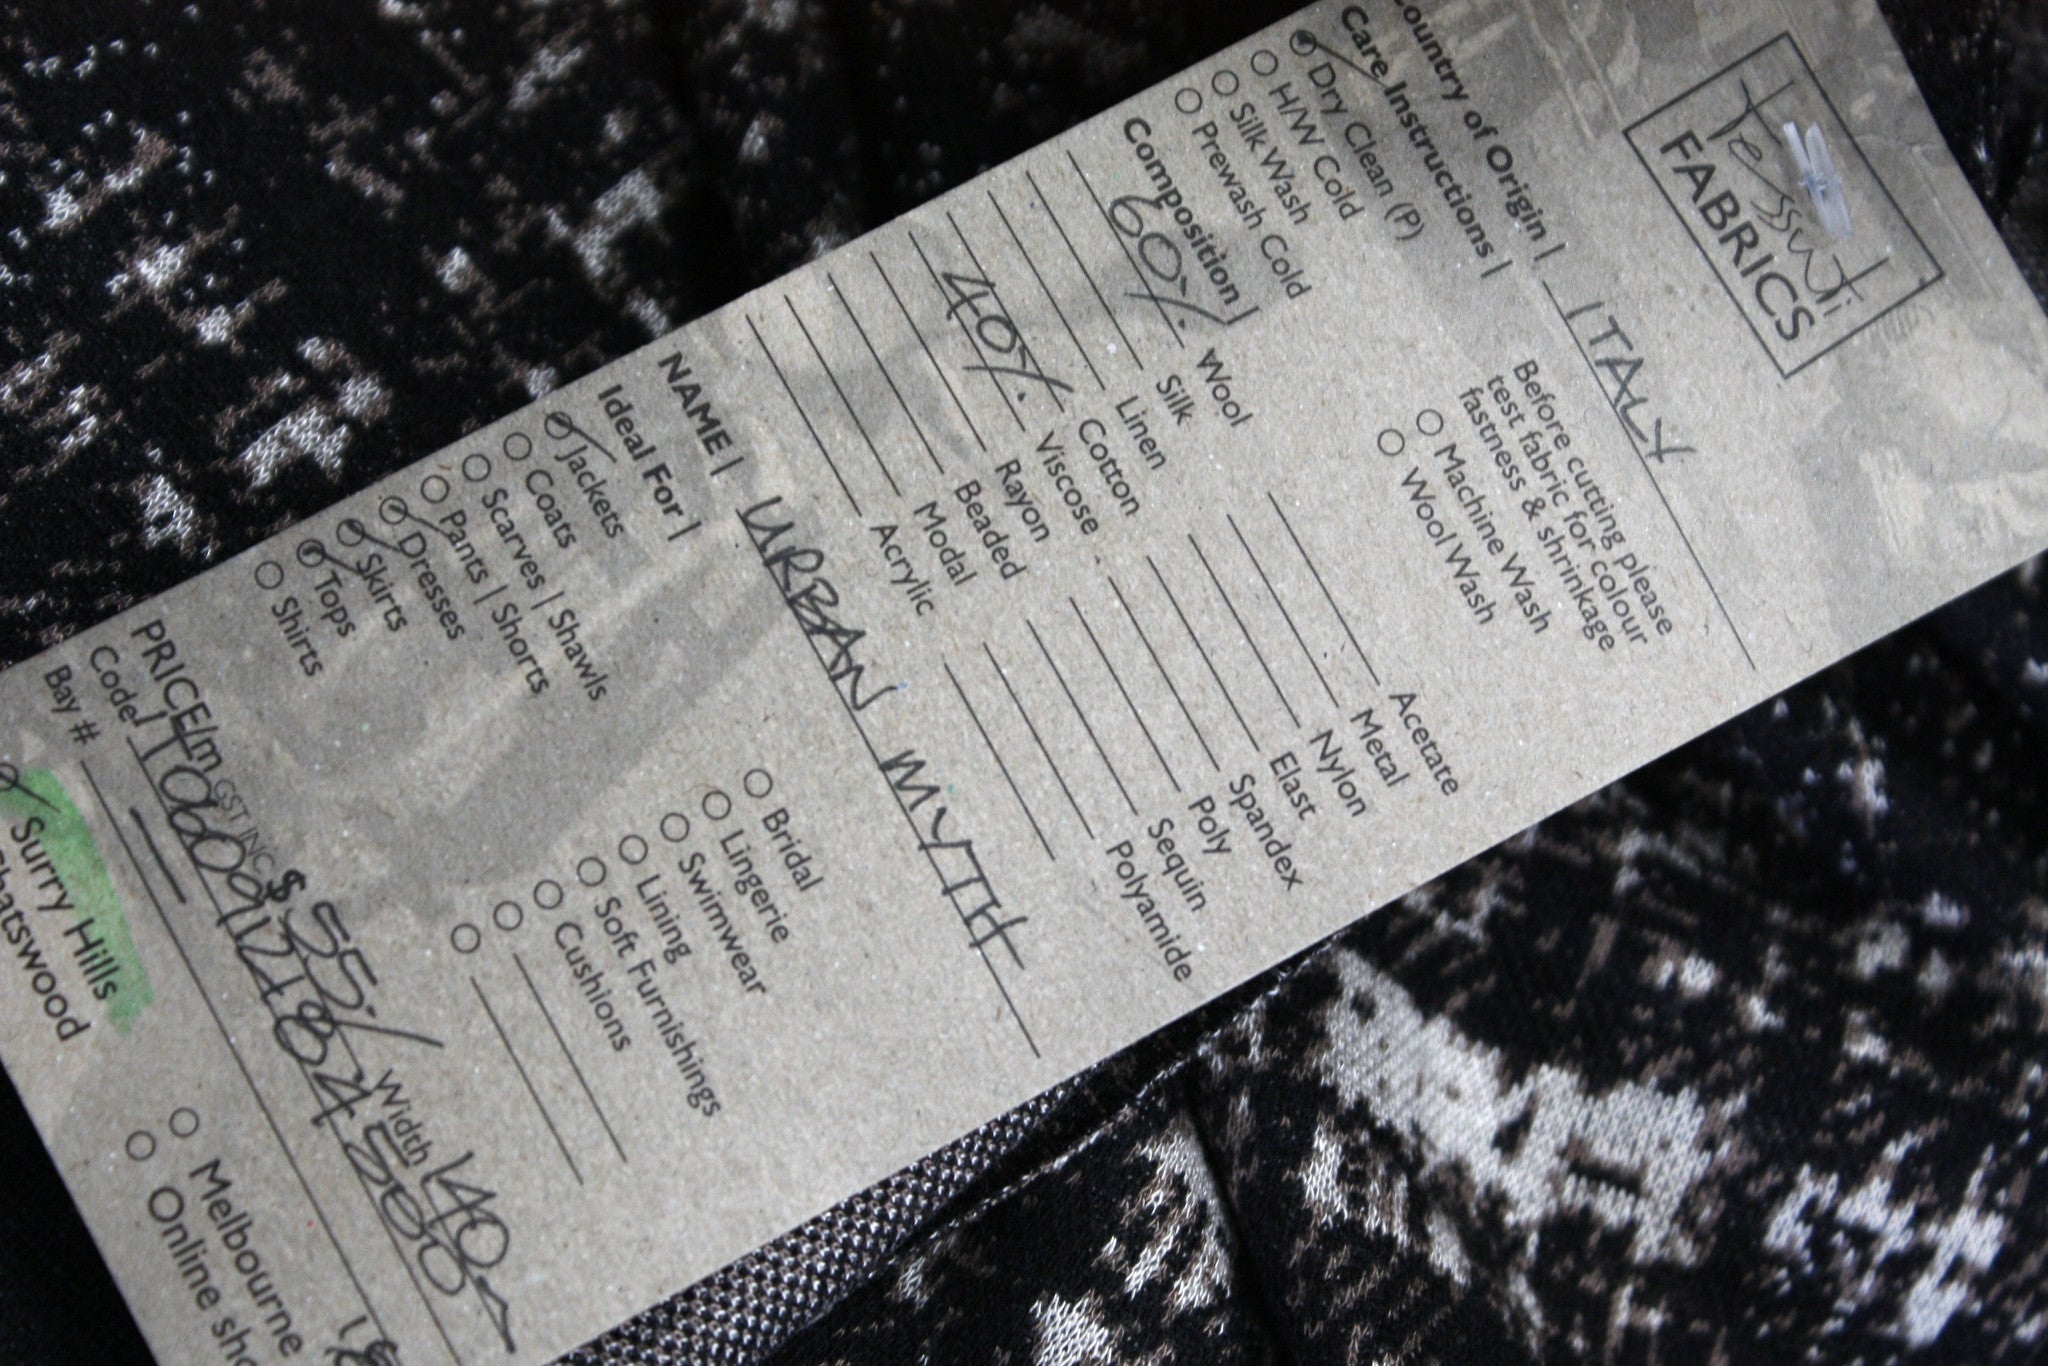 Tessuti
FABRICS
Country of Origin | ITALY
Care Instructions |
Dry Clean (P)
H/W Cold
Silk Wash
Prewash Cold
Before cutting please
test fabric for colour
fastness & shrinkage
Machine Wash
Wool Wash
Composition |
60% Wool
Silk
Linen
40% Cotton
Viscose
Rayon
Beaded
Modal
Acrylic
Acetate
Metal
Nylon
Elast
Spandex
Poly
Sequin
Polyamide
NAME | URBAN MYTH
Ideal For |
Jackets
Coats
Scarves | Shawls
Pants | Shorts
Dresses
Skirts
Tops
Shirts
Bridal
Lingerie
Swimwear
Lining
Soft Furnishings
Cushions
PRICE/m GST INC $55. Width 140
Code
Bay #
Surry Hills
Chatswood
Melbourne
Online